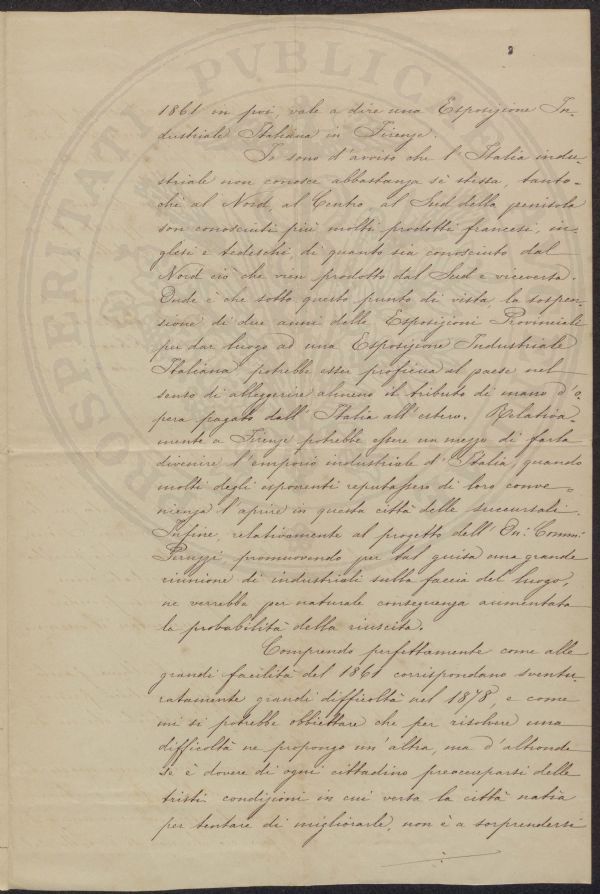 1861 in poi, vale a dire una Esposizione In-
dustriale Italiana in Firenze.
Io sono d'avviso che l'Italia indu-
striale non conosce abbastanza sè stessa, tanto-
chè al Nord, al Centro, al Sud della penisola
son conosciuti più molti prodotti francesi, in-
glesi e tedeschi, di quanto sia conosciuto dal
Nord ciò che vien prodotto dal Sud e viceversa.
Onde è che sotto questo punto di vista la sospen-
sione di due anni delle Esposizioni Provinciali
per dar luogo ad una Esposizione Industriale
Italiana potrebbe esser proficua al paese nel
senso di alleggerire almeno il tributo di mano d'o-
pera pagato dall'Italia all'estero. Relativa-
mente a Firenze potrebbe essere un mezzo di farla
divenire l'emporio industriale d'Italia, quando
molti degli esponenti reputassero di loro conve-
nienza l'aprire in questa città delle succursali.
Infine, relativamente al progetto dell'On: Comm:
Peruzzi promuovendo per tal guisa una grande
riunione di industriali sulla faccia del luogo,
ne verrebbe per naturale conseguenza aumentata
la probabilità della riuscita.
Comprendo perfettamente come alle
grandi facilità del 1861 corrispondano sventu-
ratamente grandi difficoltà nel 1878, e come
mi si potrebbe obbiettare che per risolvere una
difficoltà ne propongo un'altra, ma d'altronde
se è dovere di ogni cittadino preoccuparsi delle
tristi condizioni in cui versa la città natia
per tentare di migliorarle, non è a sorprendersi